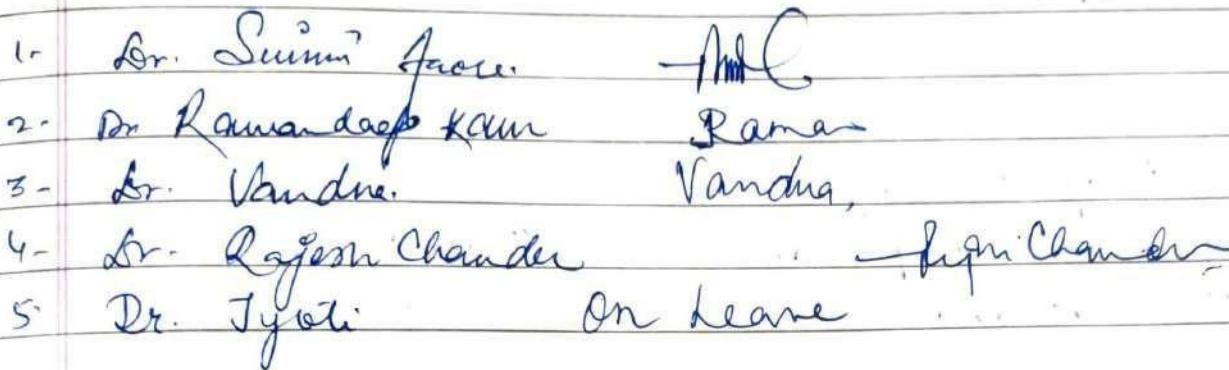 1- Dr.
2- Dr Ramandeep Kaur Raman
3- Dr. Vandna. Vandna,
4- Dr. Rajesh Chander Chander
5 Dr. Jyoti On Leave